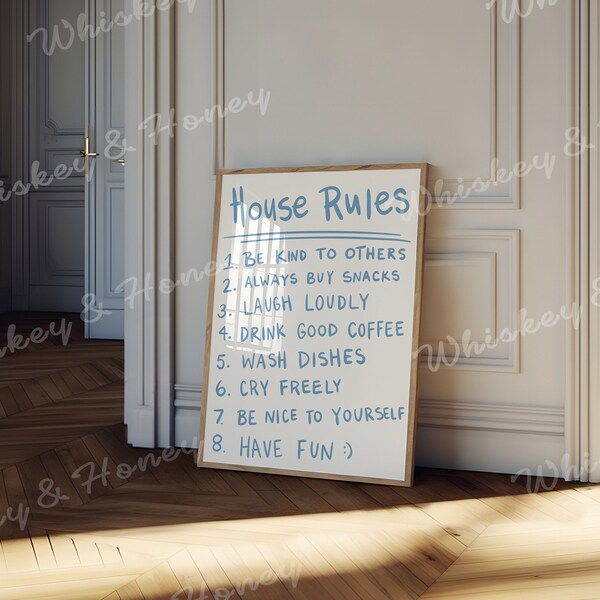 House Rules
1. BE KIND TO OTHERS
2. ALWAYS BUY SNACKS
3. LAUGH LOUDLY
4. DRINK GOOD COFFEE
5. WASH DISHES
6. CRY FREELY
7. BE NICE TO YOURSELF
8. HAVE FUN :)
Whiskey & Honey
Whiskey & Honey
Whiskey &
Whiskey & Honey
Whiskey &
& Honey
Whiskey & Honey